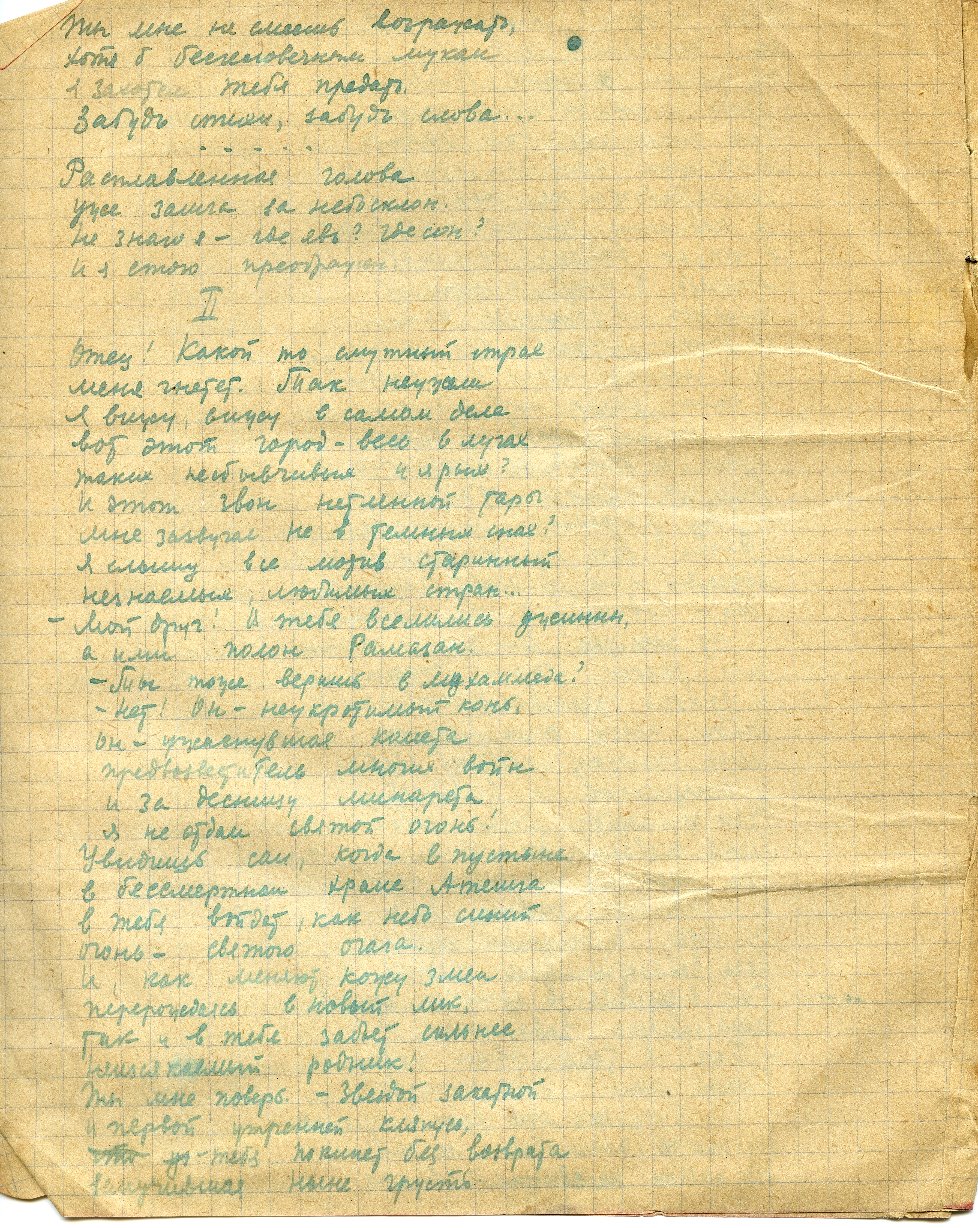 Ты мне не смеешь возражать,
хотя б бесчеловечным мукам
я захотел тебя предать.
Забудь стихи, забудь слова...
. . . . . .
Расплавленная голова
уже зашла за небосклон.
Не знаю я – где явь? где сон?
И я стою преображен.
II
Отец! Какой то смутный страх
меня гнетет. Так неужели
я вижу, вижу в самом деле
вот этот город – весь в лугах
таких и ярых?
И этот звон нетленной тары
мне зазвучал не в темных снах?
Я слышу все мотив старинный
незнаемых, любимых стран...
– Мой друг! В тебя вселились джинны,
а ими полон Рамазан.
– Ты тоже веришь в Мухаммеда?
– Нет! Он – неукротимый конь,
он – ужаснувшая комета
предвозвеститель многих войн
и за десницу минарета
я не отдам святой огонь!
Увидишь сам, когда в пустыне
в бессмертном храме Атешга
в тебя войдет, как небо синий
огонь – святого очага.
И, как меняют кожу змеи
перерождаясь в новый лик,
так и в тебе забьет сильнее
неиссякаемый родник!
Ты мне поверь – Звездой закатной
и первой утренней клянусь,
тебя покинет без возврата
измучившая ныне грусть